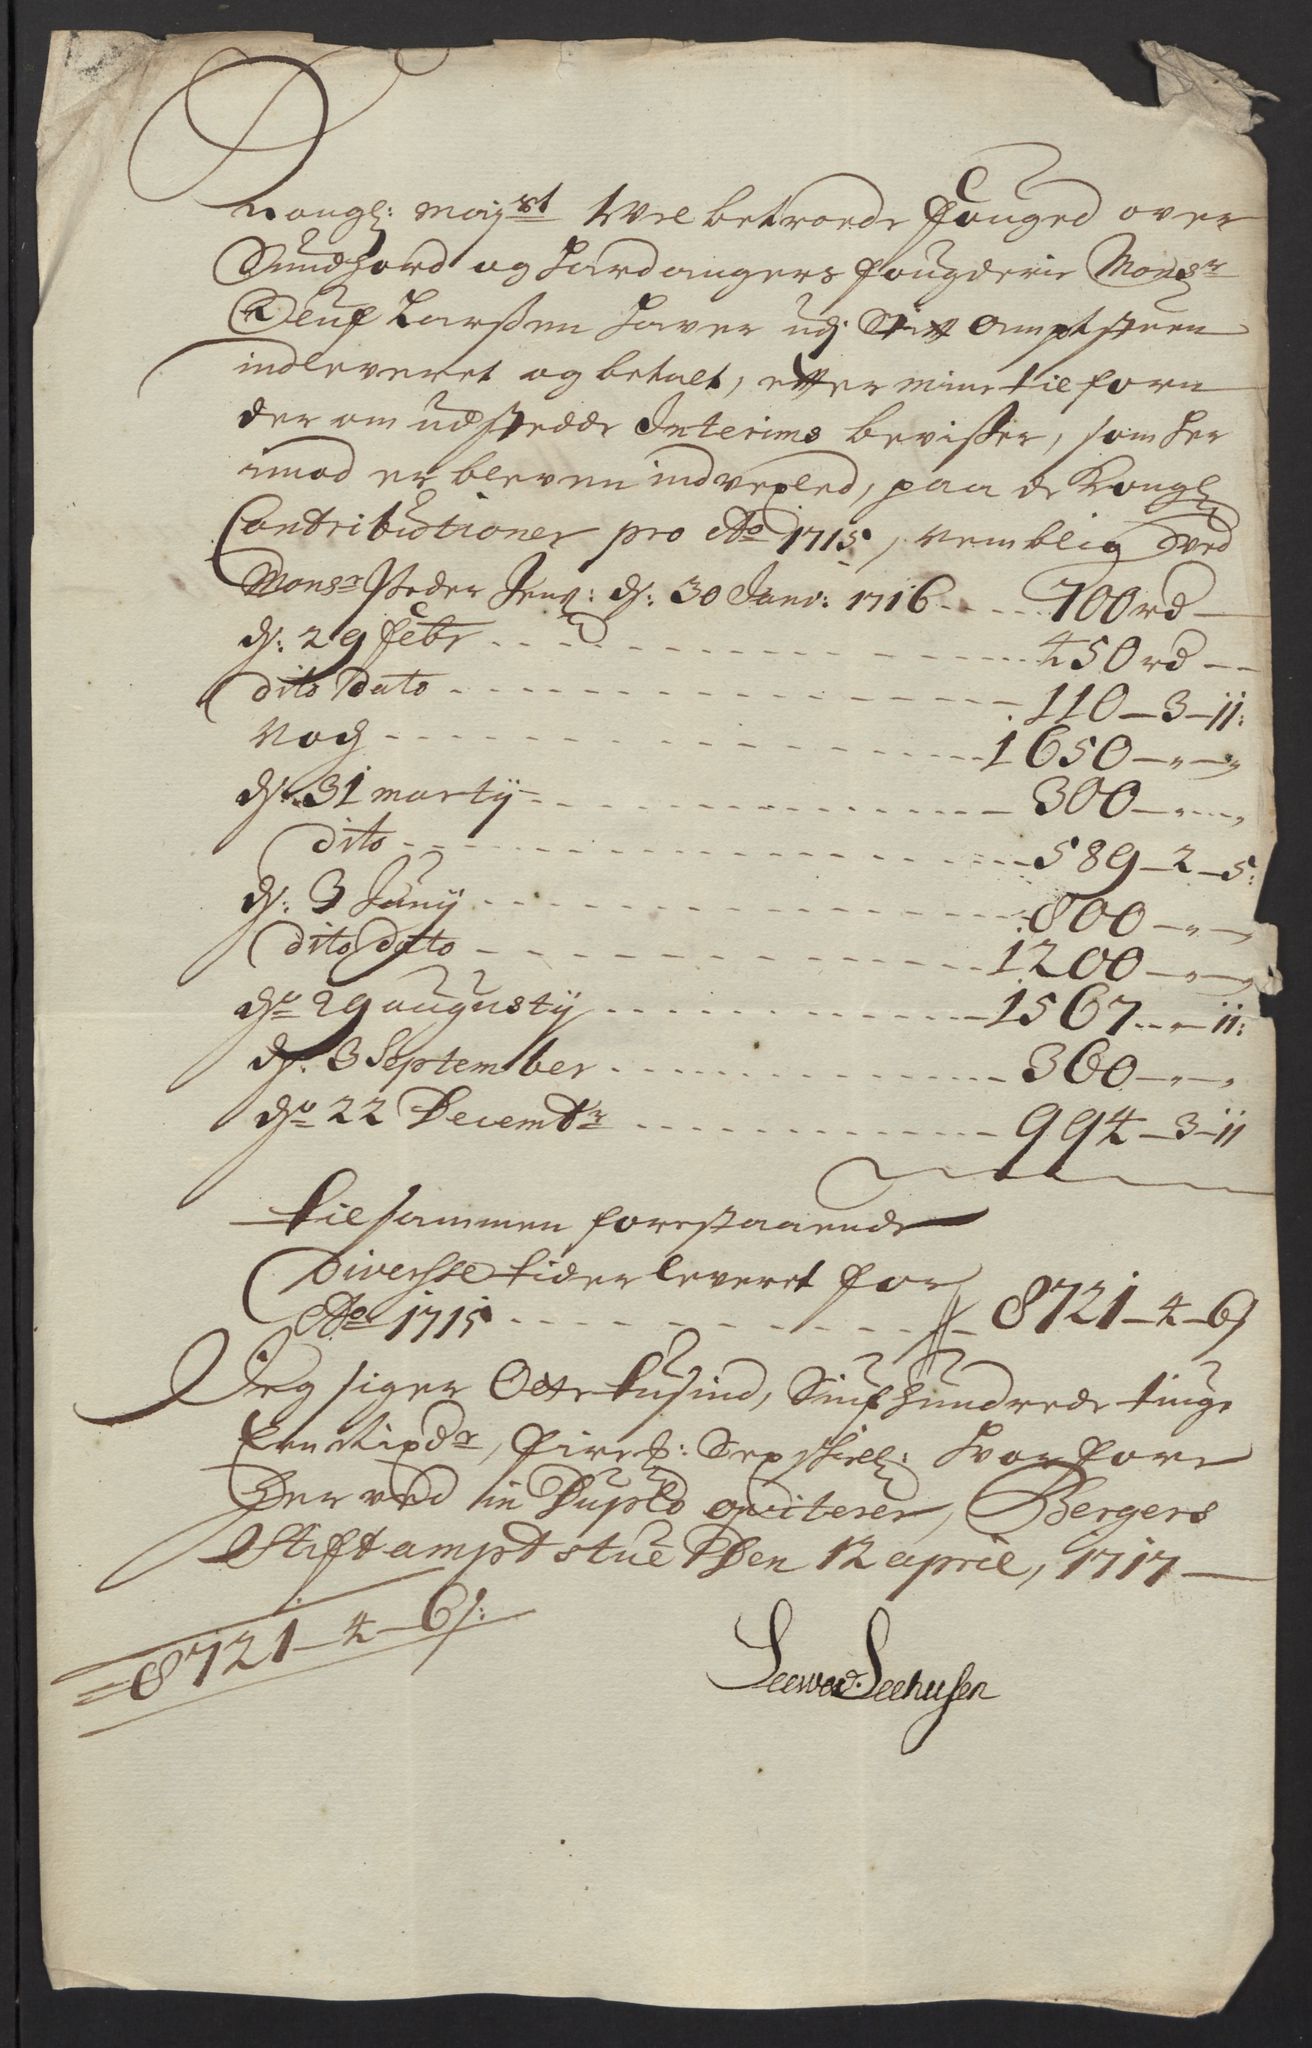 Kongl: Mayst Wel betroede Fouged over
Sundhord og Hardangers fougderie Monsr
Oeluf Larssen haver udj Stift Amptstuen
indleveret og betalt, efter mine tilforn
der om udstedde Interims bevisser, som her
imod er bleven indvexled, paa de Kongl
Contributioner pro Ao 1715, nemblig ved
Monsr Peder Jens: d: 30 Janv: 1716 700 rd
d: 29 Febr 450 rd
dito Dato 110 - 3 - 11:
Noch 1650 - " - "
d: 31 Marty 300 - " - "
dito 589 - 2 - 5:
d: 3 Juny 800 - " - "
dito Dato 1200 - " - "
do 29 augusty 1567 - " - 11:
d: 3 September 360 - " - "
do 22 Decembr 994 - 3 - 11
tilsammen forestaaende
Diversse tider leveret for
Ao 1715 8721 - 4 - 6
Jeg siger Otte tusind, Siufhundrede tiuge
Een Rixdr, fire #: Sex skill: Hvorfore
Herved in Duplo qviterer, Bergens
Stiftamptstue Den 12 april, 1717
8721 - 4 - 6:
Seehusen